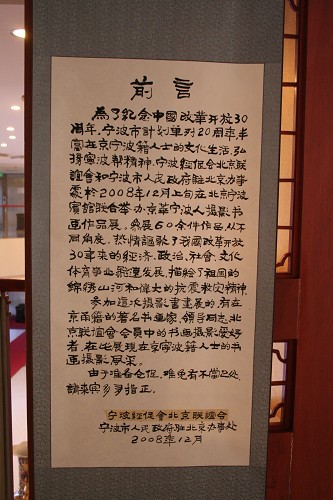 前言
為了纪念中國改革开放30
周年,宁波市计划单列20周年,丰
富在京宁波籍人士的文化生活,弘
扬宁波帮精神,宁波经促会北京联
谊會和宁波市人民政府驻北京办事
處於2008年12月上旬在北京宁波
賓館联合举办京華宁波人摄影书
画作品展。参展60余件作品,从不
同角度,热情謳歌了我國改革开放
30年来的经济、政治、社會、文化
体育事业飛速发展,描绘了祖国的
锦绣山河和偉大的抗震救灾精神。
参加這次攝影書畫展的,有在
京甬籍的著名书画家、领导同志、北
京联谊會会員中的书画摄影爱好
者,在此展現在京宁波籍人士的书
画摄影风采。
由于准备仓促,难免有不當之处,
請来宾多多指正。
宁波经促會北京联谊会
宁波市人民政府驻北京办事处
2008年12月